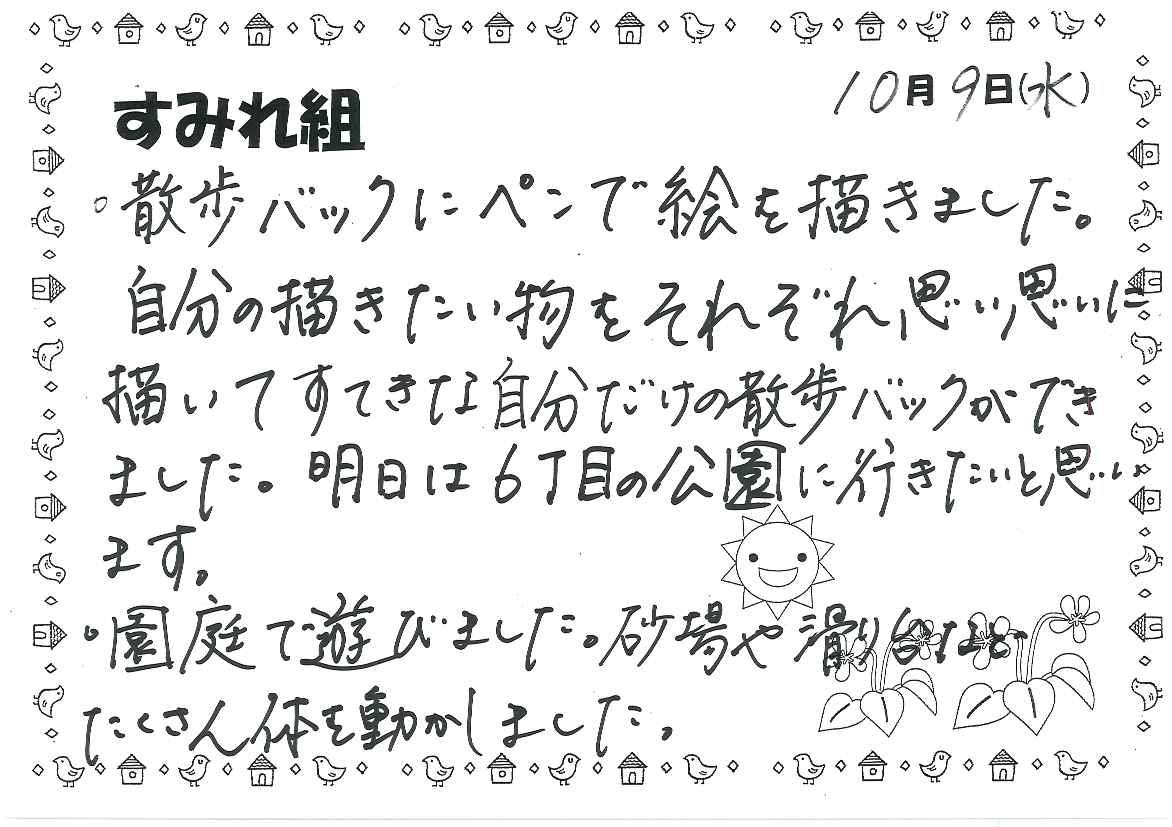 10月9日(水)
すみれ組
。散歩バックにペンで絵を描きました。
自分の描きたい物をそれぞれ思い思いに
描いてすてきな自分だけの散歩バックができ
ました。明日は6丁目の公園に行きたいと思い
ます。
。園庭で遊びました。砂場や滑り台など
たくさん体を動かしました。